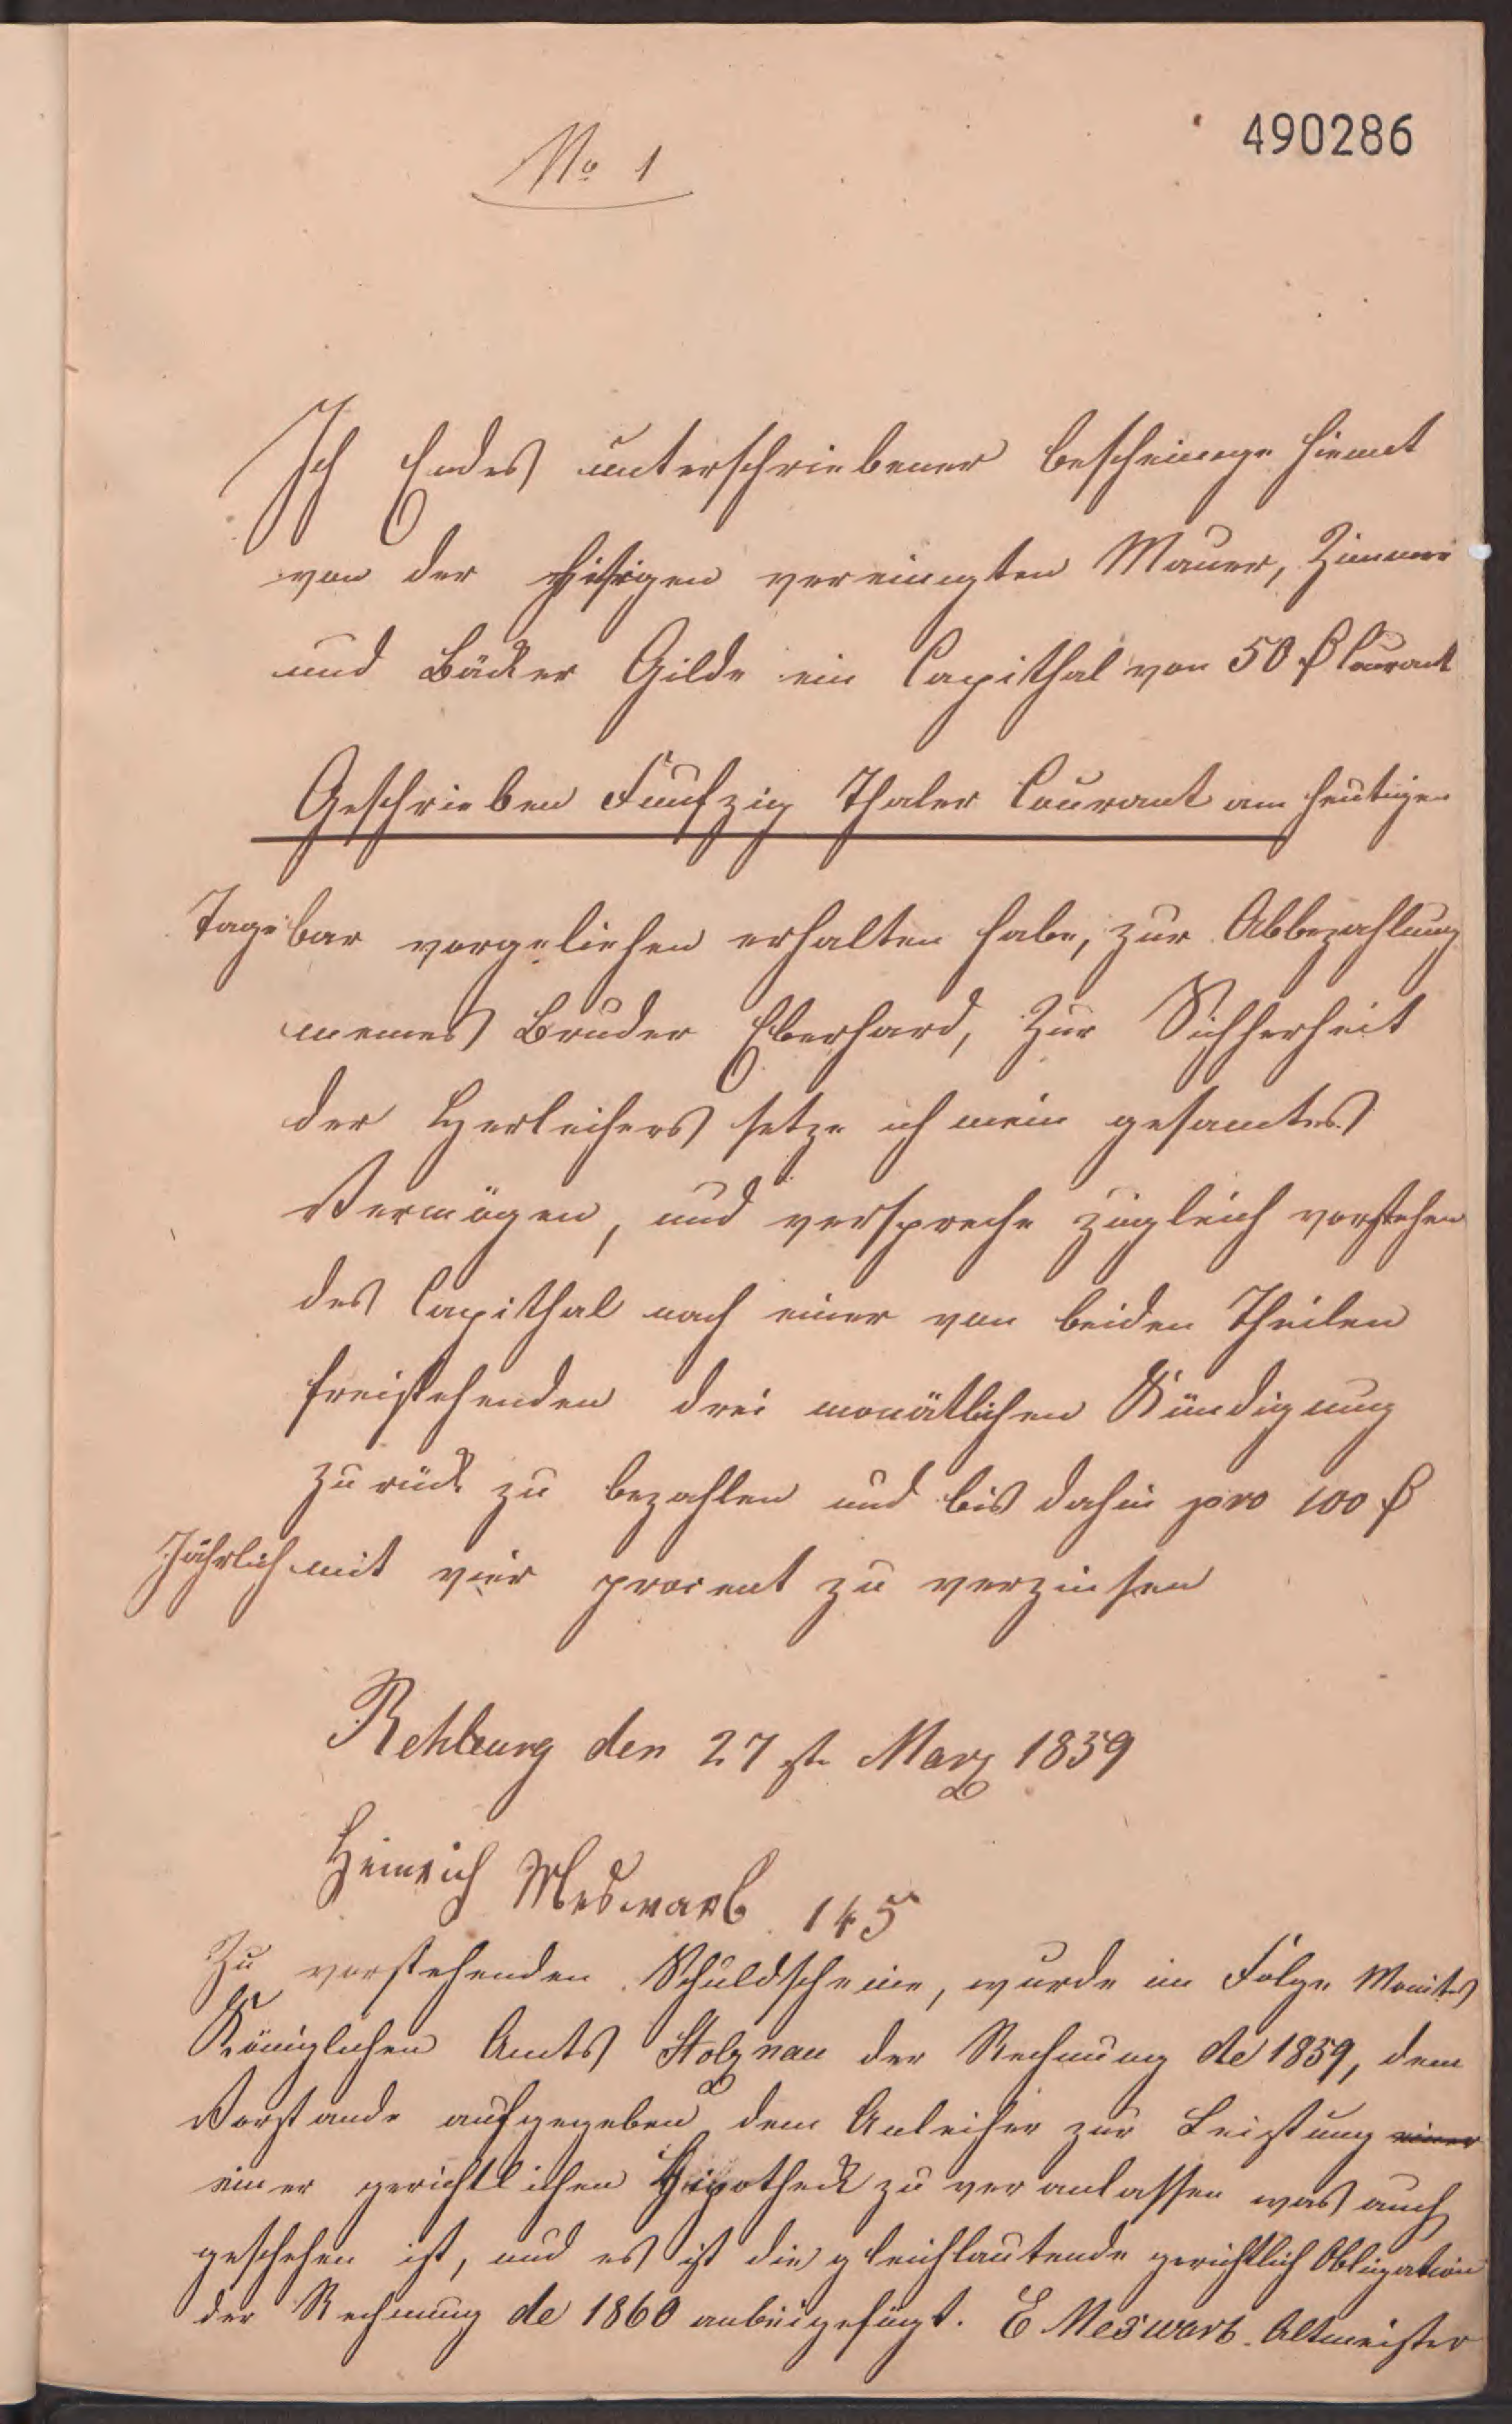 490286
No 1
Ich Endes unterschriebener bescheinige hiemit
von der hisigen vereinigten Mauer, Zimmer
und Bäcker Gilde ein Capithal von 50 ₰ Courant
Geschrieben Funfzig Thaler Courant am heutigen
Tage bar vorgeliehen erhalten habe, zur Abbezahlung
meines Bruder Eberhard, Zur Sichherheit
der Herleihers setze ich mein gesamtes
Vermögen, und verspreche zugleich vorstehen
des Capithal nach einer von beiden Theilen
freistehenden drei monätlichen Kündigung
zurück zu bezahlen und bis dahin pro 100 ₰
Jährlich mit vier procent zu verzinsen
Rehburg den 27 st Marz 1859
Heinrich Meswarb 145
Zu vorstehenden Schuldscheine, wurde in Folge Monitos
Königlichen Amts Stolznau der Rechnung de 1859, dem
Vorstande aufgegeben dem Anleiher zur Leistung einer
einer gerichtlichen Hipotheck zu veranlassen was auch
geschehen ist, und es ist die gleichlautende gerichtlich Obligation
der Rechnung de 1860 anbeigefügt. E Meswarb. Altmeister